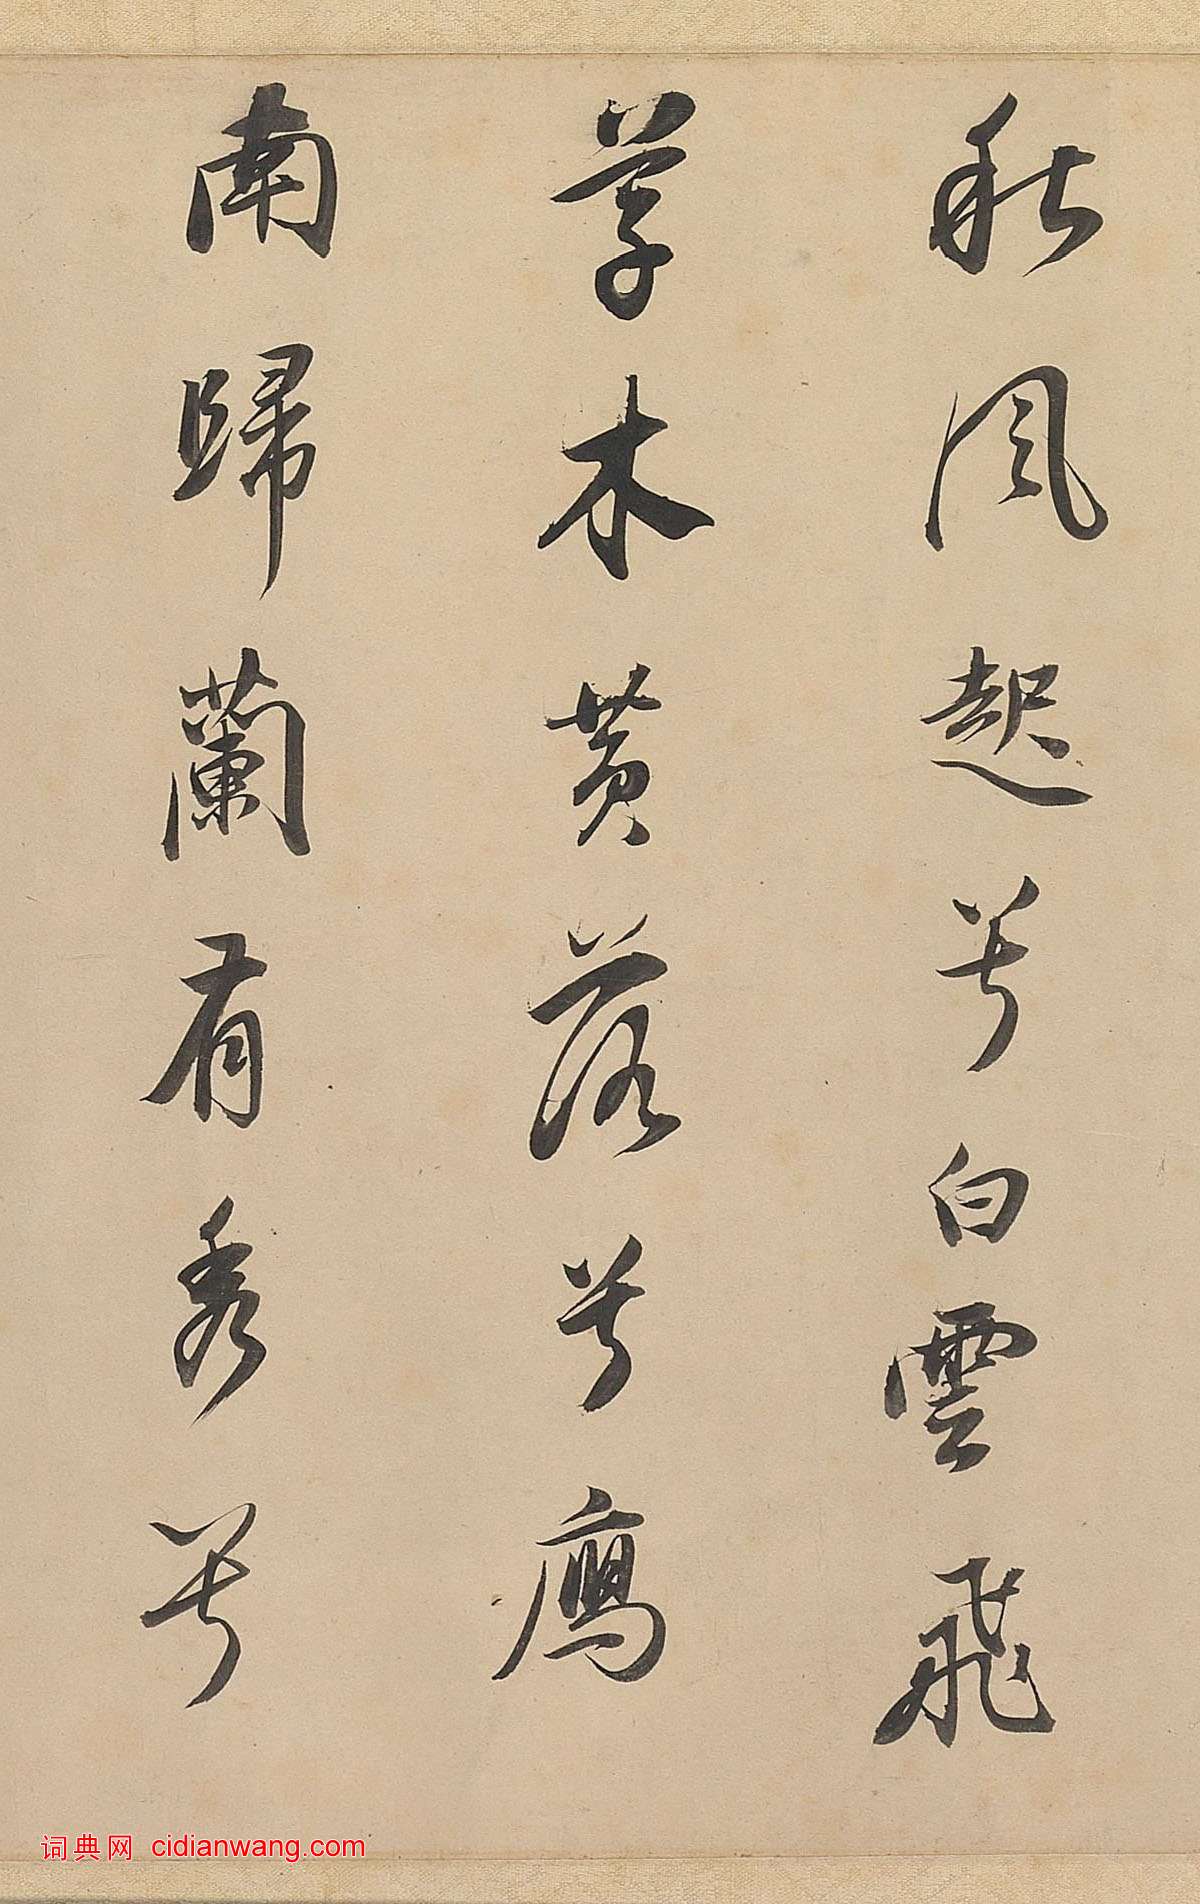 秋風起兮白雲飛
草木黄落兮鴈
南歸蘭有秀兮
词典网 cidianwang.com